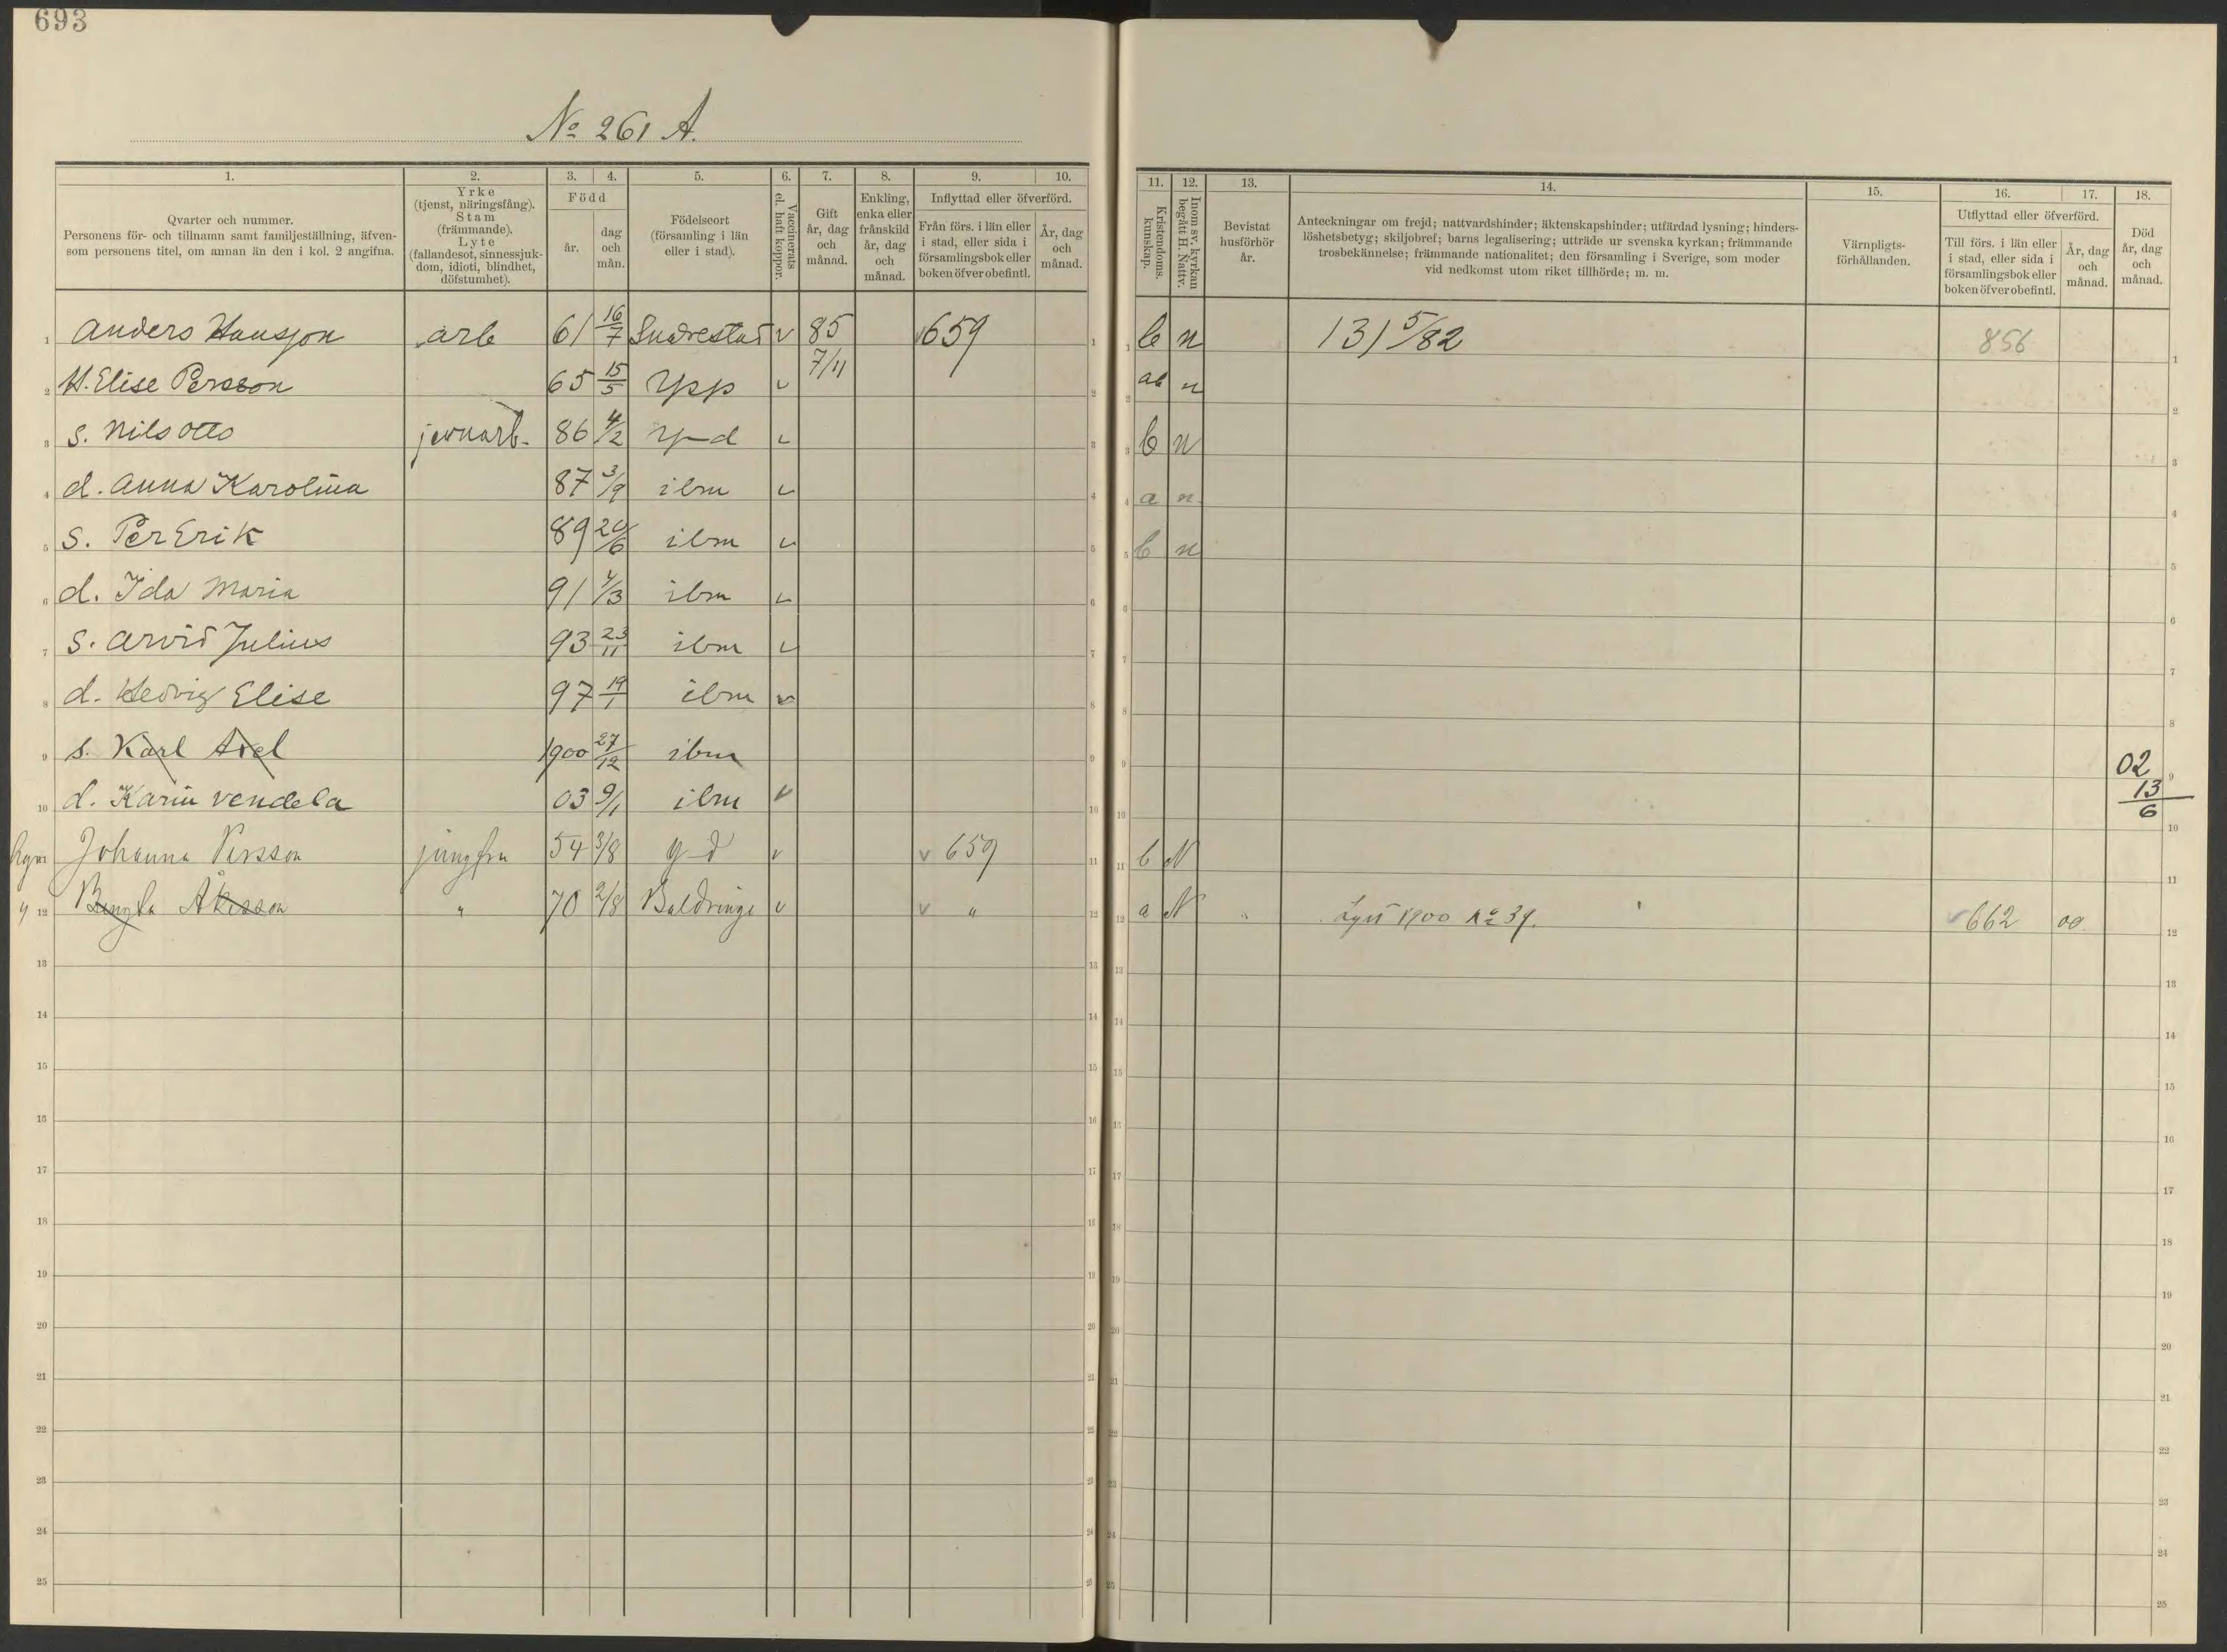 693
No 261 A.
1. 2. 3. 4. 5. 6. 7. 8. 9. 10.
Qvarter och nummer.
Personens för- och tillnamn samt familjeställning, äfven-
som personens titel, om annan än den i kol. 2 angifna.
Yrke
(tjenst, näringsfång).
Stam
(främmande).
Lyte
(fallandesot, sinnessjuk-
dom, idioti, blindhet,
döfstumhet).
Född
år.
dag
och
mån.
Födelseort
(församling i län
eller i stad).
Vaccinerats
el. haft koppor.
Gift
år, dag
och
månad.
Enkling,
enka eller
frånskild
år, dag
och
månad.
Inflyttad eller öfverförd.
Från förs. i län eller
i stad, eller sida i
församlingsbok eller
boken öfver obefintl.
År, dag
och
månad.
11. 12. 13. 14. 15. 16. 17. 18.
Kristendoms-
kunskap.
Inom sv. kyrkan
begått H. Nattv.
Bevistat
husförhör
år.
Anteckningar om frejd; nattvardshinder; äktenskapshinder; utfärdad lysning; hinders-
löshetsbetyg; skiljobref; barns legalisering; utträde ur svenska kyrkan; främmande
trosbekännelse; främmande nationalitet; den församling i Sverige, som moder
vid nedkomst utom riket tillhörde; m. m.
Värnpligts-
förhållanden.
Utflyttad eller öfverförd.
Till förs. i län eller
i stad, eller sida i
församlingsbok eller
boken öfver obefintl.
År, dag
och
månad.
Död
år, dag
och
månad.
1 Anders Hansson arb 61 16/7 Snårestad v 85 7/11 v 659 1 b n 131 5/82 856 1
2 H. Elise Persson 65 15/5 Ypp v 2 ab n 2
3 s. Nils Otto jernarb. 86 4/2 Y-d v 3 b n 3
4 d. Anna Karolina 87 3/9 ibm v 4 a n 4
5 s. Per Erik 89 20/6 ibm v 5 b n 5
6 d. Ida Maria 91 4/3 ibm v 6
7 s. Arvid Julius 93 23/11 ibm v 7
8 d. Hedvig Elise 97 19/1 ibm v 8
9 s. Karl Axel 1900 27/12 ibm 9 02 13/6
10 d. Karin Vendela 03 9/1 ibm v 10
Johanna Persson jungfru 54 3/8 Y-d v v 659 11 b N 11
12 Bengta Åkesson " 70 2/8 Baldringe v v " 12 a N " Lyst 1900 No 39. 662 00 12
13
14
15
16
17
18
19
20
21
22
23
24
25